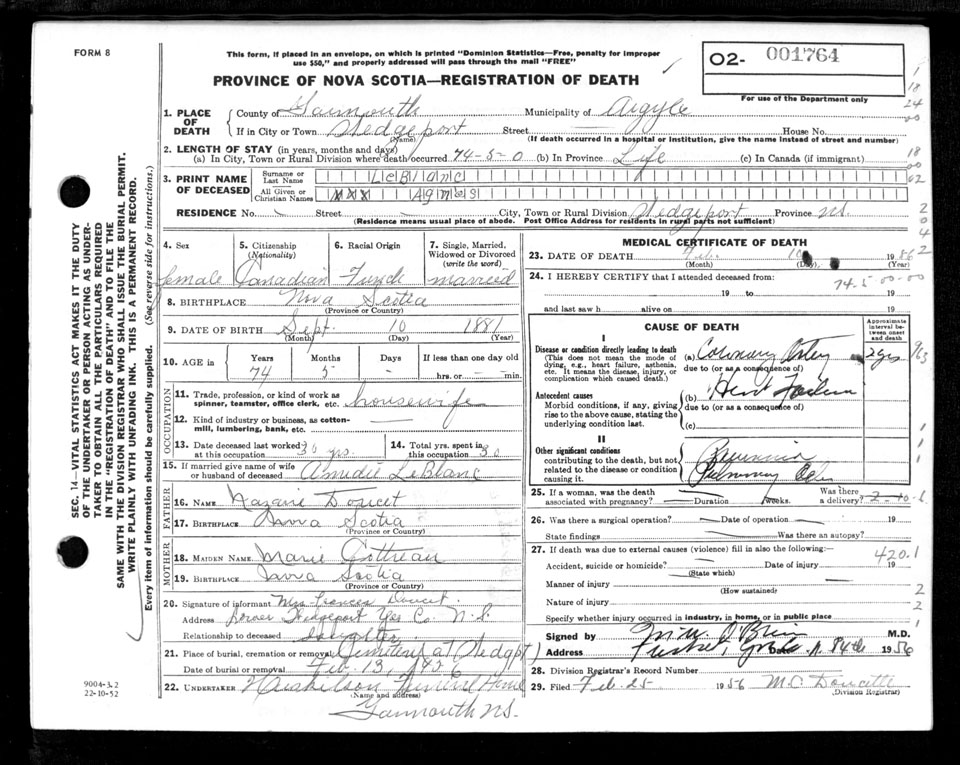 FORM 8
This form, if placed in an envelope, on which is printed "Dominion Statistics—Free, penalty for improper
use $50," and properly addressed will pass through the mail "FREE"
PROVINCE OF NOVA SCOTIA—REGISTRATION OF DEATH
O2- 001764
For use of the Department only
1. PLACE OF DEATH
County of Yarmouth Municipality of Argyle
If in City or Town Wedgeport Street House No.
(Name) (If death occurred in a hospital or institution, give the name instead of street and number)
2. LENGTH OF STAY (in years, months and days)
(a) In City, Town or Rural Division where death occurred 74-5-0 (b) In Province Life (c) In Canada (if immigrant)
3. PRINT NAME OF DECEASED
Surname or Last Name LeBlanc
All Given or Christian Names xxx Agnes
RESIDENCE No. Street City, Town or Rural Division Wedgeport Province N.S.
(Residence means usual place of abode. Post Office Address for residents in rural parts not sufficient)
4. Sex
female
5. Citizenship (Nationality)
Canadian
6. Racial Origin
French
7. Single, Married, Widowed or Divorced (write the word)
married
8. BIRTHPLACE Nova Scotia
(Province or Country)
9. DATE OF BIRTH Sept. 10 1881
(Month) (Day) (Year)
10. AGE in Years Months Days If less than one day old
74 5 - hrs. or min.
OCCUPATION
11. Trade, profession, or kind of work as spinner, teamster, office clerk, etc. housewife
12. Kind of industry or business, as cotton-mill, lumbering, bank, etc.
13. Date deceased last worked at this occupation 30 yrs.
14. Total yrs. spent in this occupation 30
15. If married give name of wife or husband of deceased Amedie LeBlanc
FATHER
16. NAME Nazaire Doucet
17. BIRTHPLACE Nova Scotia
(Province or Country)
MOTHER
18. MAIDEN NAME Marie Cottreau
19. BIRTHPLACE Nova Scotia
(Province or Country)
20. Signature of informant Mrs Frances Doucet
Address Lower Wedgeport Yar Co. N.S.
Relationship to deceased Daughter
21. Place of burial, cremation or removal (Cemetery at Wedgpt)
Date of burial or removal Feb. 13, 1956
22. UNDERTAKER Funeral Home
(Name and address)
Yarmouth N.S.
MEDICAL CERTIFICATE OF DEATH
23. DATE OF DEATH Feb. 10 1956
(Month) (Day) (Year)
24. I HEREBY CERTIFY that I attended deceased from:
74.5-00-00
19 to 19
and last saw h alive on 19
CAUSE OF DEATH
Approximate interval between onset and death
I
Disease or condition directly leading to death
(This does not mean the mode of dying, e.g., heart failure, asthenia, etc. It means the disease, injury, or complication which caused death.)
(a) Coronary 2 yrs
due to (or as a consequence of)
Antecedent causes
Morbid conditions, if any, giving rise to the above cause, stating the underlying condition last.
(b) Heart
due to (or as a consequence of)
(c)
II
Other significant conditions
contributing to the death, but not related to the disease or condition causing it.
Pulmonary
25. If a woman, was the death associated with pregnancy? Duration Weeks. Was there a delivery?
26. Was there a surgical operation? Date of operation 19
State findings Was there an autopsy?
27. If death was due to external causes (violence) fill in also the following:—
420.1
Accident, suicide or homicide? Date of injury 19
(State which)
Manner of injury
(How sustained)
Nature of injury
Specify whether injury occurred in industry, in home, or in public place
Signed by O'Brien M.D.
Address 1956
28. Division Registrar's Record Number
29. Filed Feb. 25 1956 M.C. Doucette
(Division Registrar)
SEC. 14—VITAL STATISTICS ACT MAKES IT THE DUTY
OF THE UNDERTAKER OR PERSON ACTING AS UNDER-
TAKER TO OBTAIN ALL THE PARTICULARS REQUIRED
IN THE "REGISTRATION OF DEATH" AND TO FILE THE
SAME WITH THE DIVISION REGISTRAR WHO SHALL ISSUE THE BURIAL PERMIT.
WRITE PLAINLY WITH UNFADING INK. THIS IS A PERMANENT RECORD.
Every item of information should be carefully supplied. (See reverse side for instructions.)
9004-3.2
22-10-52